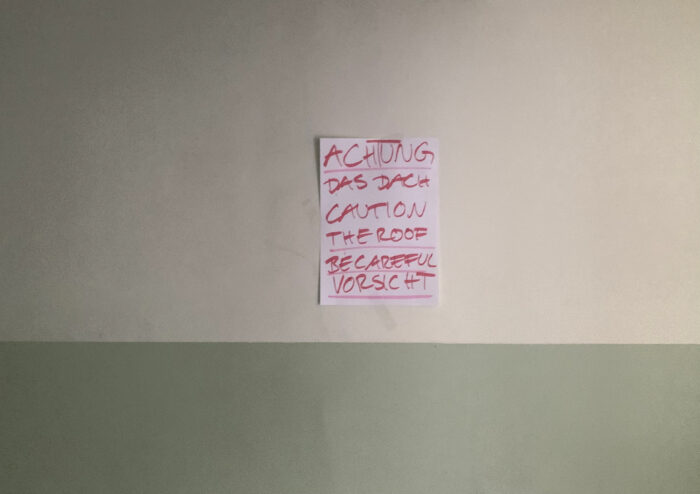 ACHTUNG
DAS DACH
CAUTION
THE ROOF
BE CAREFUL
VORSICHT